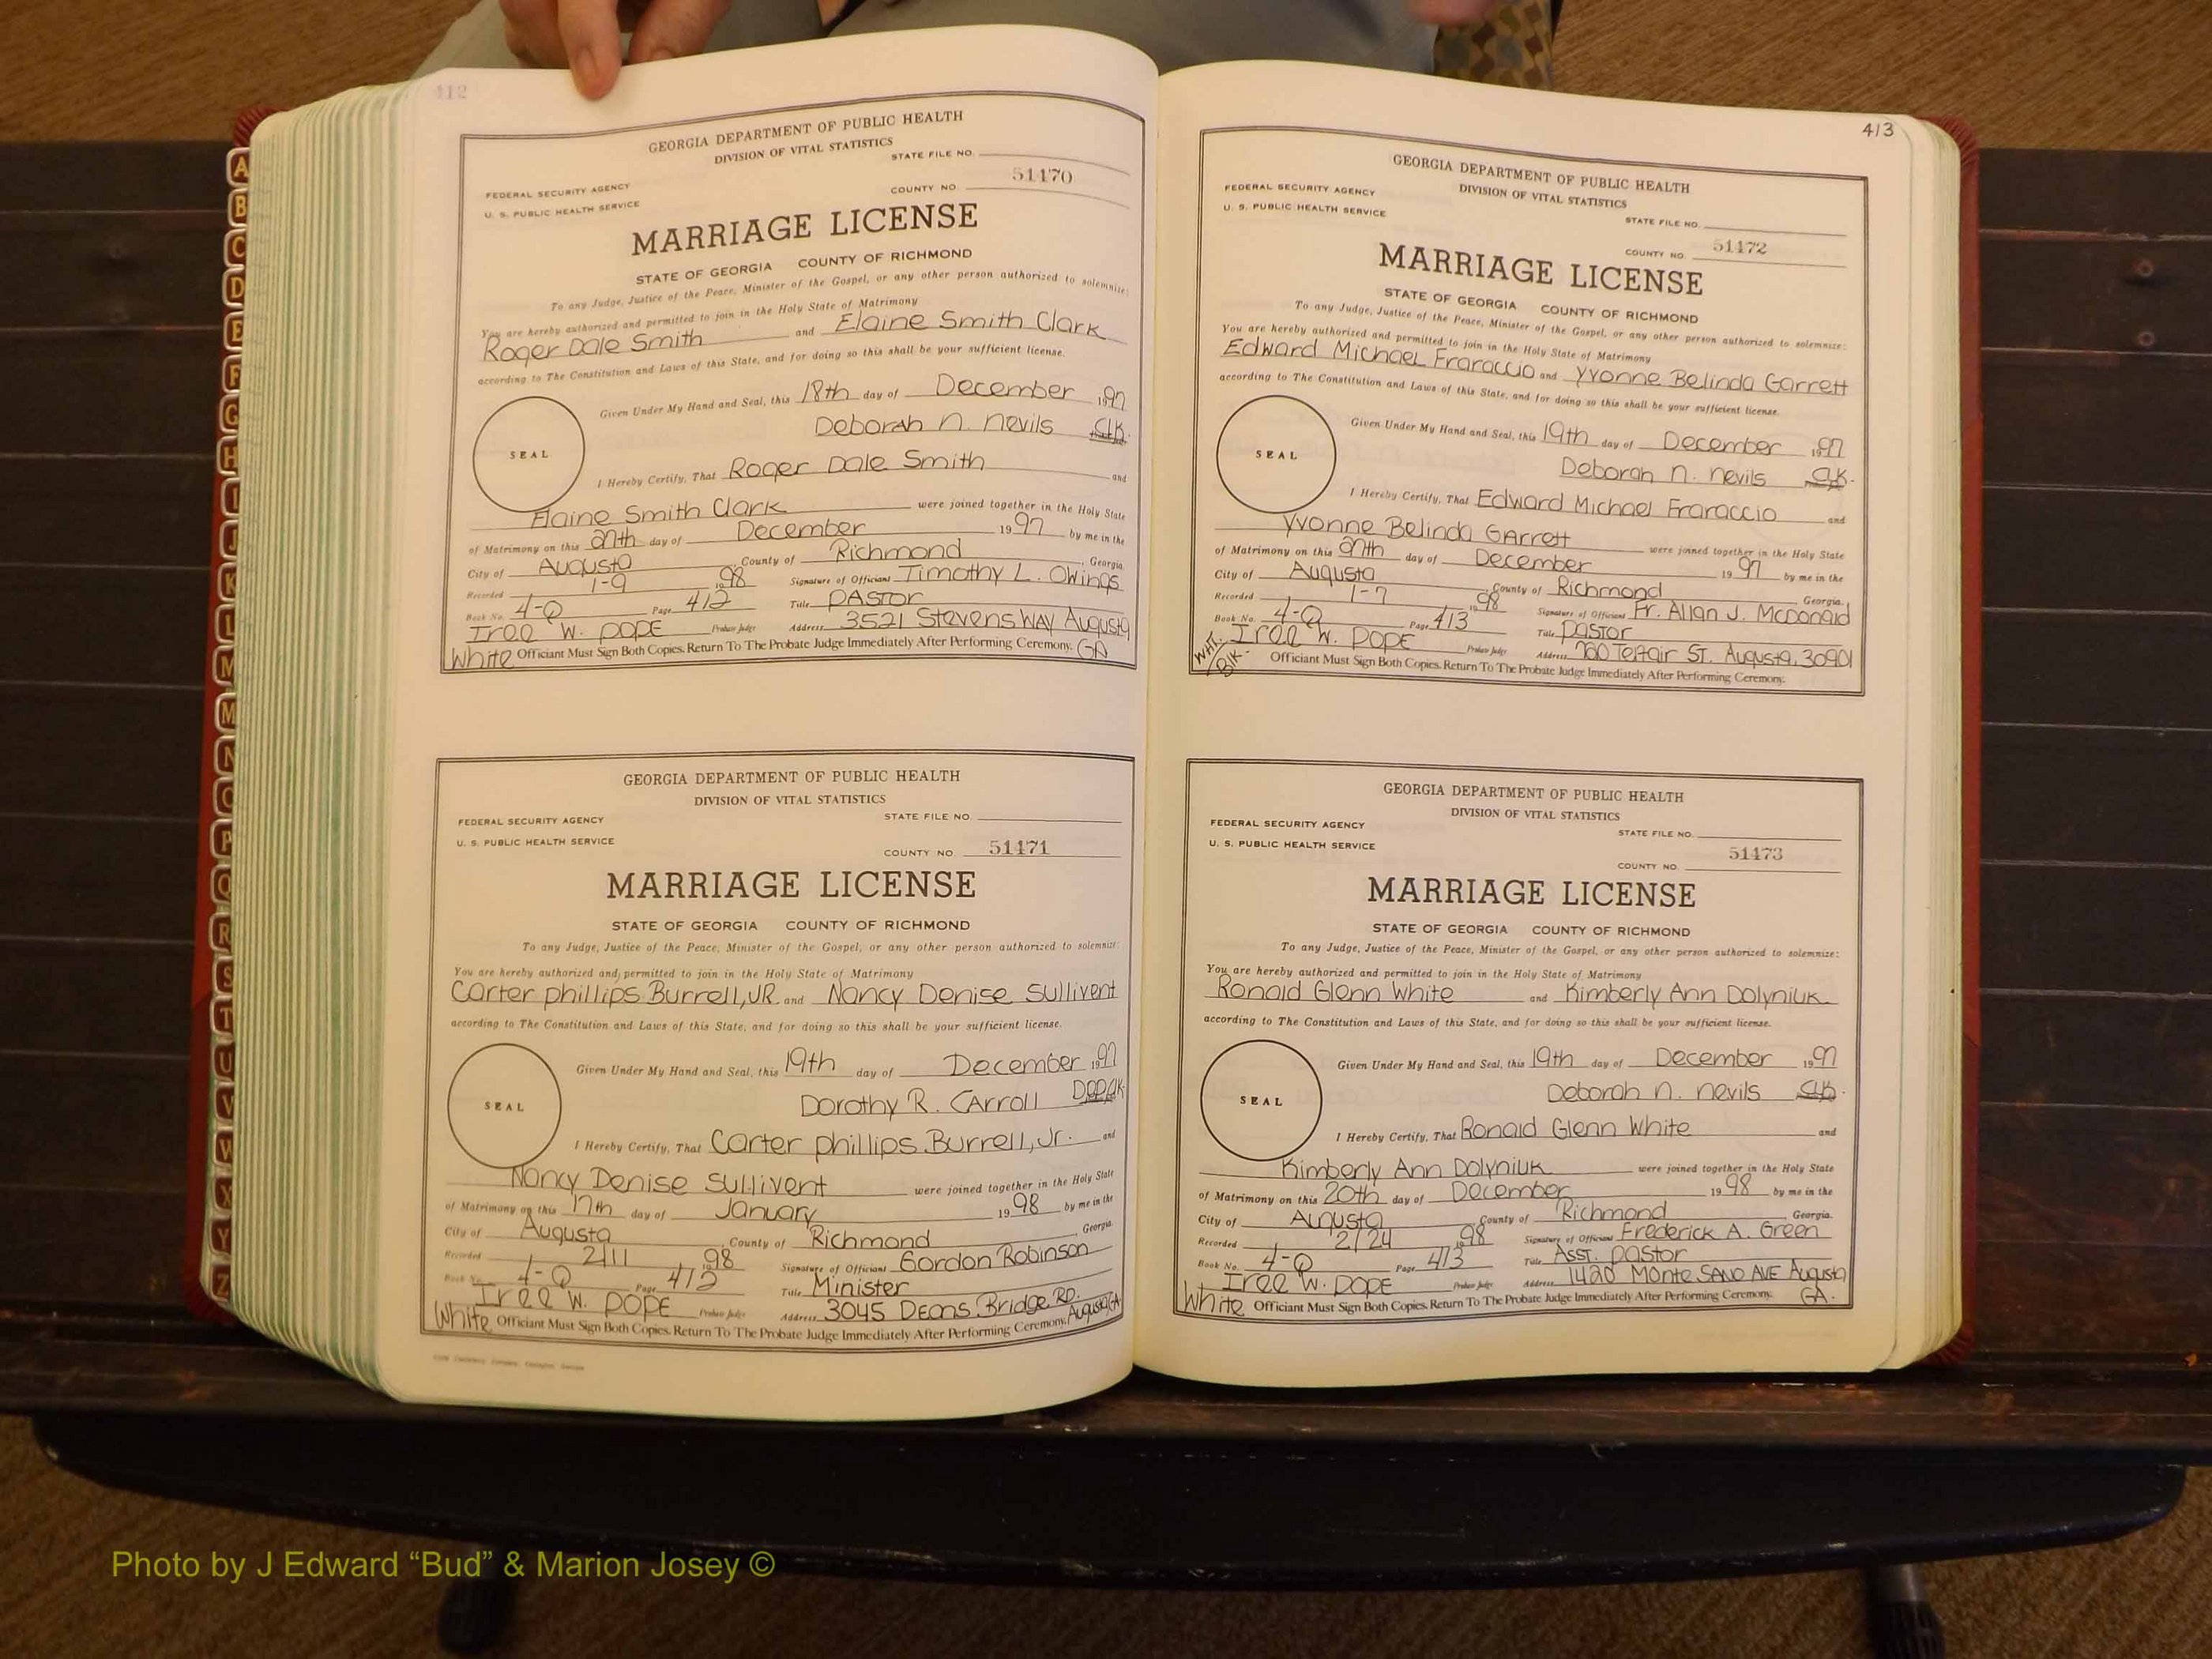 A
B
C
D
E
F
G
H
I
J
K
L
M
N
O
P
Q
R
S
T
U
V
W
X
Y
Z
412
GEORGIA DEPARTMENT OF PUBLIC HEALTH
DIVISION OF VITAL STATISTICS
STATE FILE NO.
FEDERAL SECURITY AGENCY
U. S. PUBLIC HEALTH SERVICE
COUNTY NO 51170
MARRIAGE LICENSE
STATE OF GEORGIA COUNTY OF RICHMOND
To any Judge, Justice of the Peace, Minister of the Gospel, or any other person authorized to solemnize:
You are hereby authorized and permitted to join in the Holy State of Matrimony
Roger Dale Smith and Elaine Smith Clark
according to The Constitution and Laws of this State, and for doing so this shall be your sufficient license.
Given Under My Hand and Seal, this 18th day of December 1997
Deborah N. Nevils Clk.
SEAL
I Hereby Certify, That Roger Dale Smith and
Elaine Smith Clark were joined together in the Holy State
of Matrimony on this 27th day of December 1997 by me in the
City of Augusta County of Richmond, Georgia.
Recorded 1-9 1998 Signature of Officiant Timothy L. Owings
Book No. 4-Q Page 412 Title Pastor
Iree W. Pope Probate Judge Address 3521 Stevens Way Augusta
White Officiant Must Sign Both Copies. Return To The Probate Judge Immediately After Performing Ceremony. GA
GEORGIA DEPARTMENT OF PUBLIC HEALTH
DIVISION OF VITAL STATISTICS
STATE FILE NO.
FEDERAL SECURITY AGENCY
U. S. PUBLIC HEALTH SERVICE
COUNTY NO. 51171
MARRIAGE LICENSE
STATE OF GEORGIA COUNTY OF RICHMOND
To any Judge, Justice of the Peace, Minister of the Gospel, or any other person authorized to solemnize:
You are hereby authorized and permitted to join in the Holy State of Matrimony
Carter Phillips Burrell, JR. and Nancy Denise Sullivent
according to The Constitution and Laws of this State, and for doing so this shall be your sufficient license.
Given Under My Hand and Seal, this 19th day of December 1997
Dorothy R. Carroll Dep. Clk.
SEAL
I Hereby Certify, That Carter Phillips Burrell, Jr. and
Nancy Denise Sullivent were joined together in the Holy State
of Matrimony on this 17th day of January 1998 by me in the
City of Augusta, County of Richmond Georgia.
Recorded 2/11 1998 Signature of Officiant Gordon Robinson
Book No. 4-Q Page 412 Title Minister
Iree W. Pope Probate Judge Address 3045 Deans Bridge RD. Augusta, GA
White Officiant Must Sign Both Copies. Return To The Probate Judge Immediately After Performing Ceremony.
413
GEORGIA DEPARTMENT OF PUBLIC HEALTH
DIVISION OF VITAL STATISTICS
FEDERAL SECURITY AGENCY
U. S. PUBLIC HEALTH SERVICE
STATE FILE NO.
COUNTY NO. 51172
MARRIAGE LICENSE
STATE OF GEORGIA COUNTY OF RICHMOND
To any Judge, Justice of the Peace, Minister of the Gospel, or any other person authorized to solemnize:
You are hereby authorized and permitted to join in the Holy State of Matrimony
Edward Michael Fraraccio and Yvonne Belinda Garrett
according to The Constitution and Laws of this State, and for doing so this shall be your sufficient license.
Given Under My Hand and Seal, this 19th day of December 1997
Deborah N. Nevils Clk.
SEAL
I Hereby Certify, That Edward Michael Fraraccio and
Yvonne Belinda Garrett were joined together in the Holy State
of Matrimony on this 27th day of December 1997 by me in the
City of Augusta, County of Richmond Georgia.
Recorded 1-7 1998 Signature of Officiant Fr. Allan J. McDonald
Book No. 4-Q Page 413 Title Pastor
Iree W. Pope Probate Judge Address 720 Telfair ST. Augusta, 30901
WHT. / Blk. Officiant Must Sign Both Copies. Return To The Probate Judge Immediately After Performing Ceremony.
GEORGIA DEPARTMENT OF PUBLIC HEALTH
DIVISION OF VITAL STATISTICS
FEDERAL SECURITY AGENCY
U. S. PUBLIC HEALTH SERVICE
STATE FILE NO.
COUNTY NO. 51173
MARRIAGE LICENSE
STATE OF GEORGIA COUNTY OF RICHMOND
To any Judge, Justice of the Peace, Minister of the Gospel, or any other person authorized to solemnize:
You are hereby authorized and permitted to join in the Holy State of Matrimony
Ronald Glenn White and Kimberly Ann Dolyniuk
according to The Constitution and Laws of this State, and for doing so this shall be your sufficient license.
Given Under My Hand and Seal, this 19th day of December 1997
Deborah N. Nevils Clk.
SEAL
I Hereby Certify, That Ronald Glenn White and
Kimberly Ann Dolyniuk were joined together in the Holy State
of Matrimony on this 20th day of December 1998 by me in the
City of Augusta County of Richmond Georgia.
Recorded 2/24 1998 Signature of Officiant Frederick A. Green
Book No. 4-Q Page 413 Title Asst. Pastor
Iree W. Pope Probate Judge Address 1420 Monte Sano AVE Augusta
White Officiant Must Sign Both Copies. Return To The Probate Judge Immediately After Performing Ceremony. GA.
Photo by J Edward “Bud” & Marion Josey ©